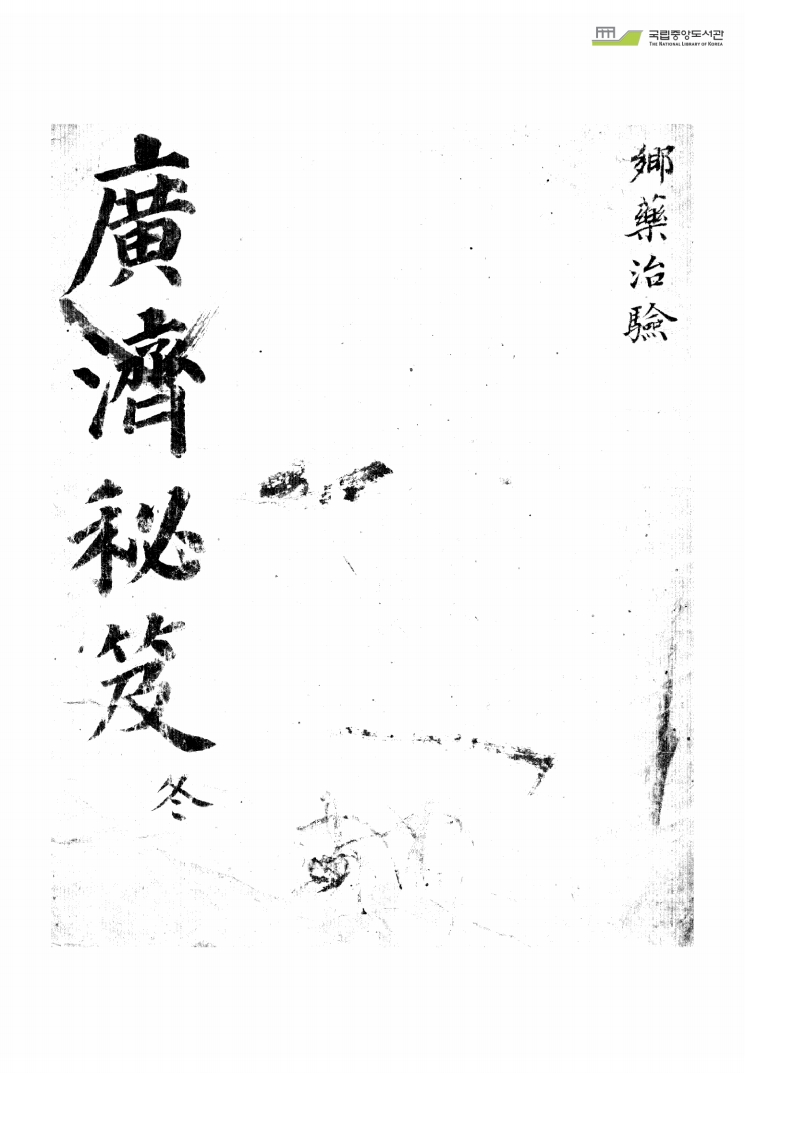 국립중앙도서관
THE NATIONAL LIBRARY OF KOREA
鄕藥治驗
廣濟秘笈
冬